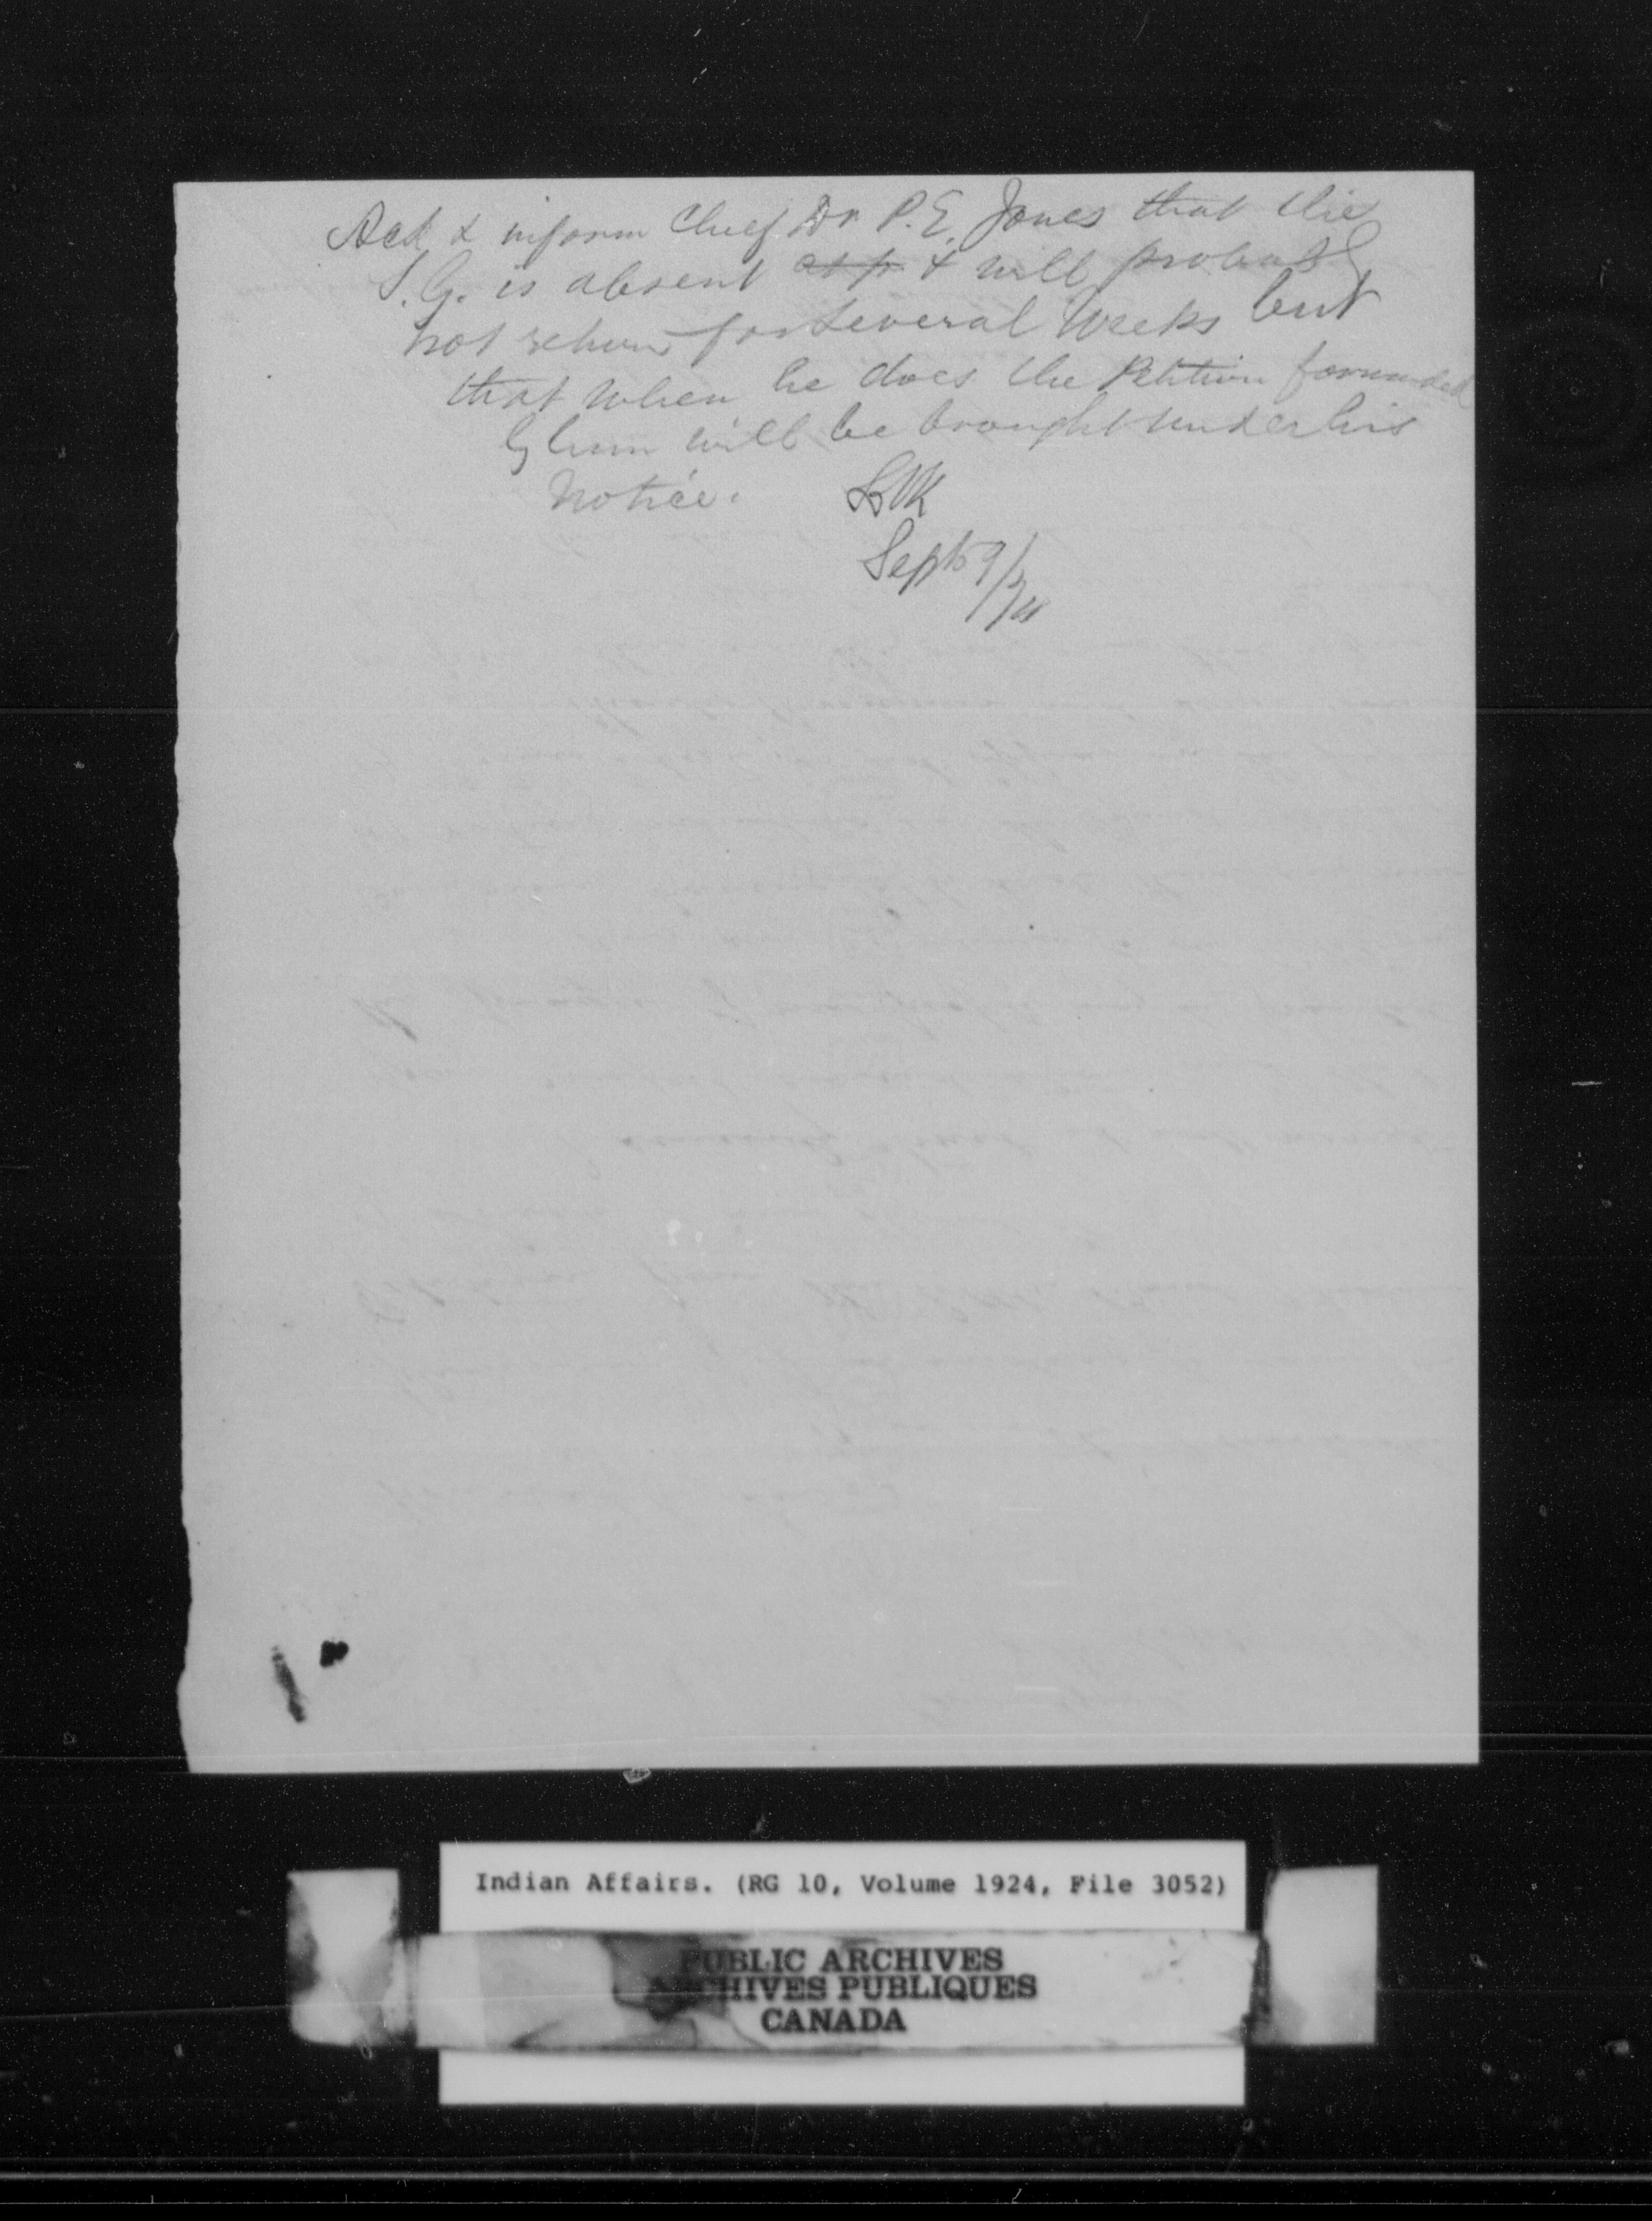 Ack & inform Chief Dr P. E. Jones that the
S. G. is absent at p. & will probably
not return for several weeks but
that when he does the Petition forwarded
by him will be brought under his
notice.
LVK
Sept 9/74
Indian Affairs. (RG 10, Volume 1924, File 3052)
PUBLIC ARCHIVES
ARCHIVES PUBLIQUES
CANADA